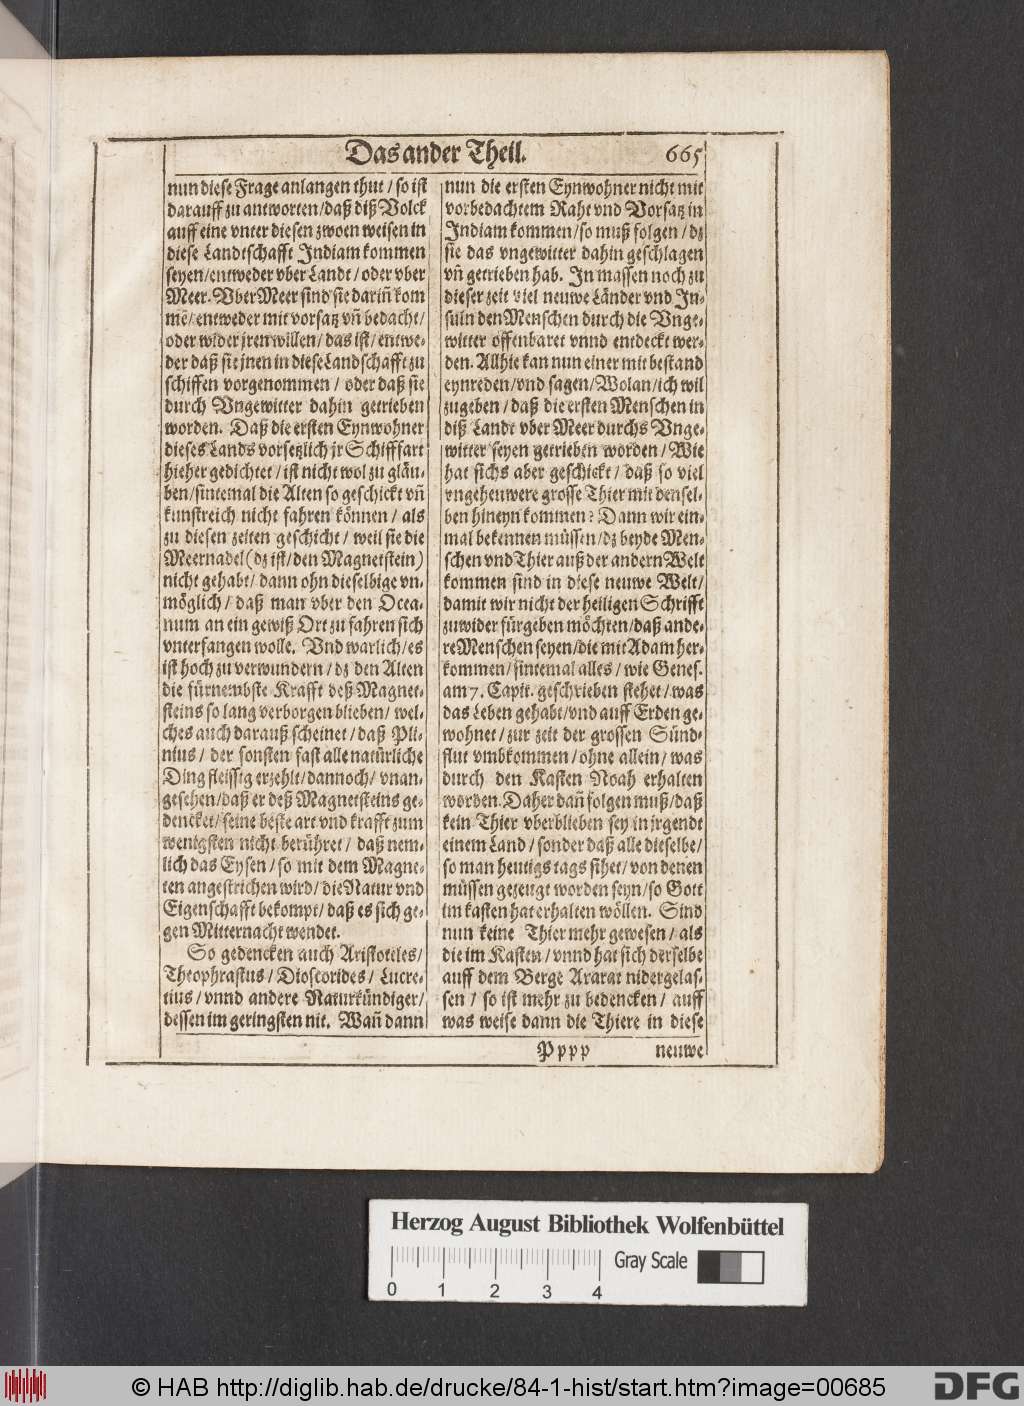 Das ander Theil. 665
nun diese Frage anlangen thut / so ist
darauff zu antworten / daß diß Volck
auff eine vnter diesen zwoen weisen in
diese Landtschafft Indiam kommen
seyen / entweder vber Landt / oder vber
Meer. Vber Meer sind sie dariñ kom
mē / entweder mit vorsatz vñ bedacht /
oder wider jren willen / das ist / entwe-
der daß sie jnen in diese Landschafft zu
schiffen vorgenommen / oder daß sie
durch Vngewitter dahin getrieben
worden. Daß die ersten Eynwohner
dieses Lands vorsetzlich jr Schifffart
hieher gedichtet / ist nicht wol zu gläu-
ben / sintemal die Alten so geschickt vñ
kunstreich nicht fahren können / als
zu diesen zeiten geschicht / weil sie die
Meernadel (dz ist / den Magnetstein)
nicht gehabt / dann ohn dieselbige vn-
möglich / daß man vber den Ocea-
num an ein gewiß Ort zu fahren sich
vnterfangen wolle. Vnd warlich / es
ist hoch zu verwundern / dz den Alten
die fürnembste Krafft deß Magnet-
steins so lang verborgen blieben / wel-
ches auch darauß scheinet / daß Pli-
nius / der sonsten fast alle natürliche
Ding fleissig erzehlt / dannoch / vnan-
gesehen / daß er deß Magnetsteins ge-
dencket / seine beste art vnd krafft zum
wenigsten nicht berühret / daß nem-
lich das Eysen / so mit dem Magne-
ten angestrichen wird / die Natur vnd
Eigenschafft bekompt / daß es sich ge-
gen Mitternacht wendet.
So gedencken auch Aristoteles /
Theophrastus / Dioscorides / Lucre-
tius / vnnd andere Naturkündiger /
dessen im geringsten nit. Wañ dann
nun die ersten Eynwohner nicht mit
vorbedachtem Raht vnd Vorsatz in
Indiam kommen / so muß folgen / dz
sie das vngewitter dahin geschlagen
vñ getrieben hab. In massen noch zu
dieser zeit viel neuwe Länder vnd In-
suln den Menschen durch die Vnge-
witter offenbaret vnnd entdeckt wer-
den. Allhie kan nun einer mit bestand
eynreden / vnd sagen / Wolan / ich wil
zugeben / daß die ersten Menschen in
diß Landt vber Meer durchs Vnge-
witter seyen getrieben worden / Wie
hat sichs aber geschickt / daß so viel
vngeheuwere grosse Thier mit densel-
ben hineyn kommen? Dann wir ein-
mal bekennen müssen / dz beyde Men-
schen vnd Thier auß der andern Welt
kommen sind in diese neuwe Welt /
damit wir nicht der heiligen Schrifft
zuwider fürgeben möchten / daß ande-
re Menschen seyen / die mit Adam her-
kommen / sintemal alles / wie Genes.
am 7. Capit. geschrieben stehet / was
das Leben gehabt / vnd auff Erden ge-
wohnet / zur zeit der grossen Sünd-
flut vmbkommen / ohne allein / was
durch den Kasten Noah erhalten
worden. Daher dañ folgen muß / daß
kein Thier vberblieben sey in jrgendt
einem Land / sonder daß alle dieselbe /
so man heutigs tags sihet / von denen
müssen gezeugt worden seyn / so Gott
im kasten hat erhalten wöllen. Sind
nun keine Thier mehr gewesen / als
die im Kasten / vnnd hat sich derselbe
auff dem Berge Ararat nidergelas-
sen / so ist mehr zu bedencken / auff
was weise dann die Thiere in diese
Pppp neuwe
Herzog August Bibliothek Wolfenbüttel
Gray Scale
0 1 2 3 4
© HAB http://diglib.hab.de/drucke/84-1-hist/start.htm?image=00685
DFG